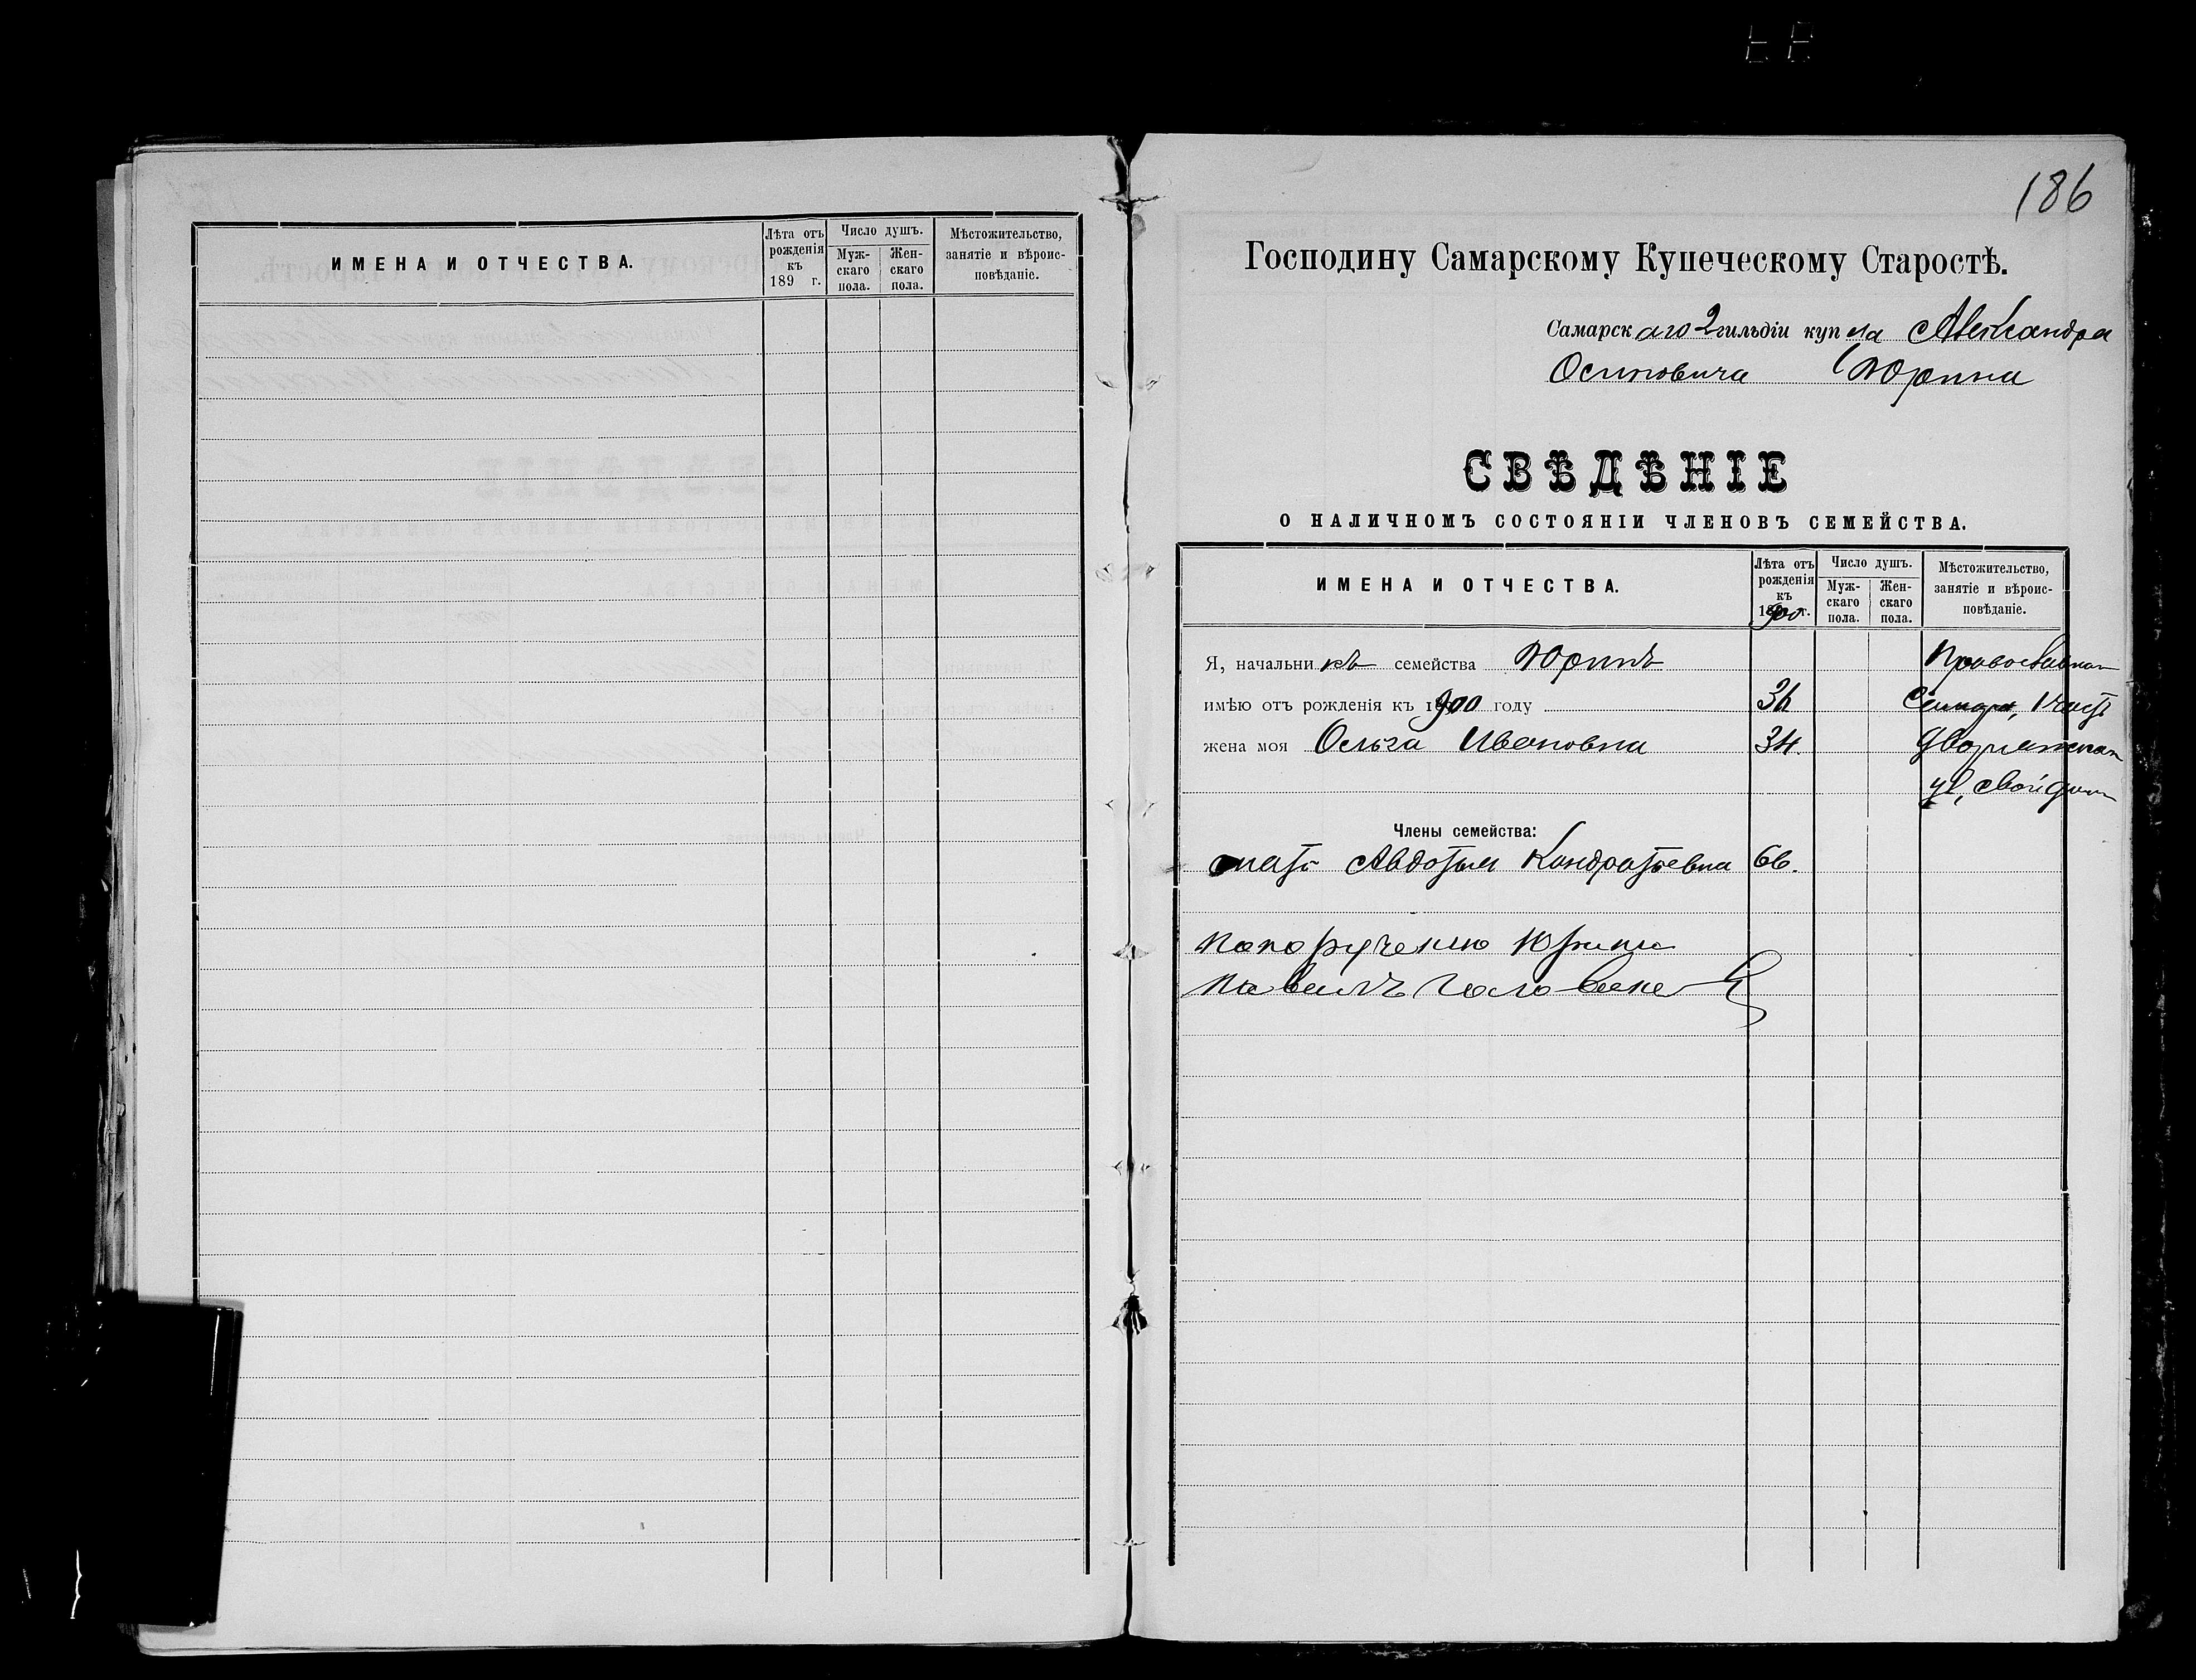 ИМЕНА И ОТЧЕСТВА.
Лѣта отъ рожденія къ 189 г.
Число душъ.
Муж-скаго пола.
Жен-скаго пола.
Мѣстожительство, занятіе и вѣроис-повѣданіе.
186
Господину Самарскому Купеческому Старостѣ.
Самарскаго 2 гильдіи купца Александра
Осиповича Юрина
СВѢДѢНІЕ
О НАЛИЧНОМЪ СОСТОЯНІИ ЧЛЕНОВЪ СЕМЕЙСТВА.
ИМЕНА И ОТЧЕСТВА.
Лѣта отъ рожденія къ 1900 г.
Число душъ.
Муж-скаго пола.
Жен-скаго пола.
Мѣстожительство, занятіе и вѣроис-повѣданіе.
Я, начальникъ семейства Юринъ Православная
имѣю отъ рожденія къ 1900 году Самара, 1 часть
жена моя Ольга Ивановна 34. Дворянская
ул, свой домъ
Члены семейства:
мать Авдотья Кондратьевна 66.
По порученію Юрина
Павелъ